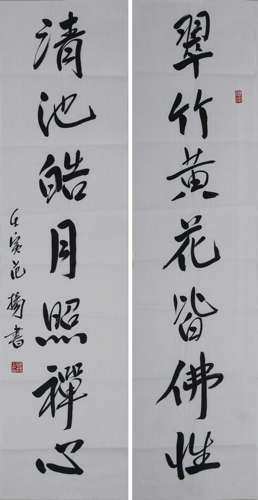 翠竹黄花皆佛性
清池皓月照禪心
壬寅范楊書